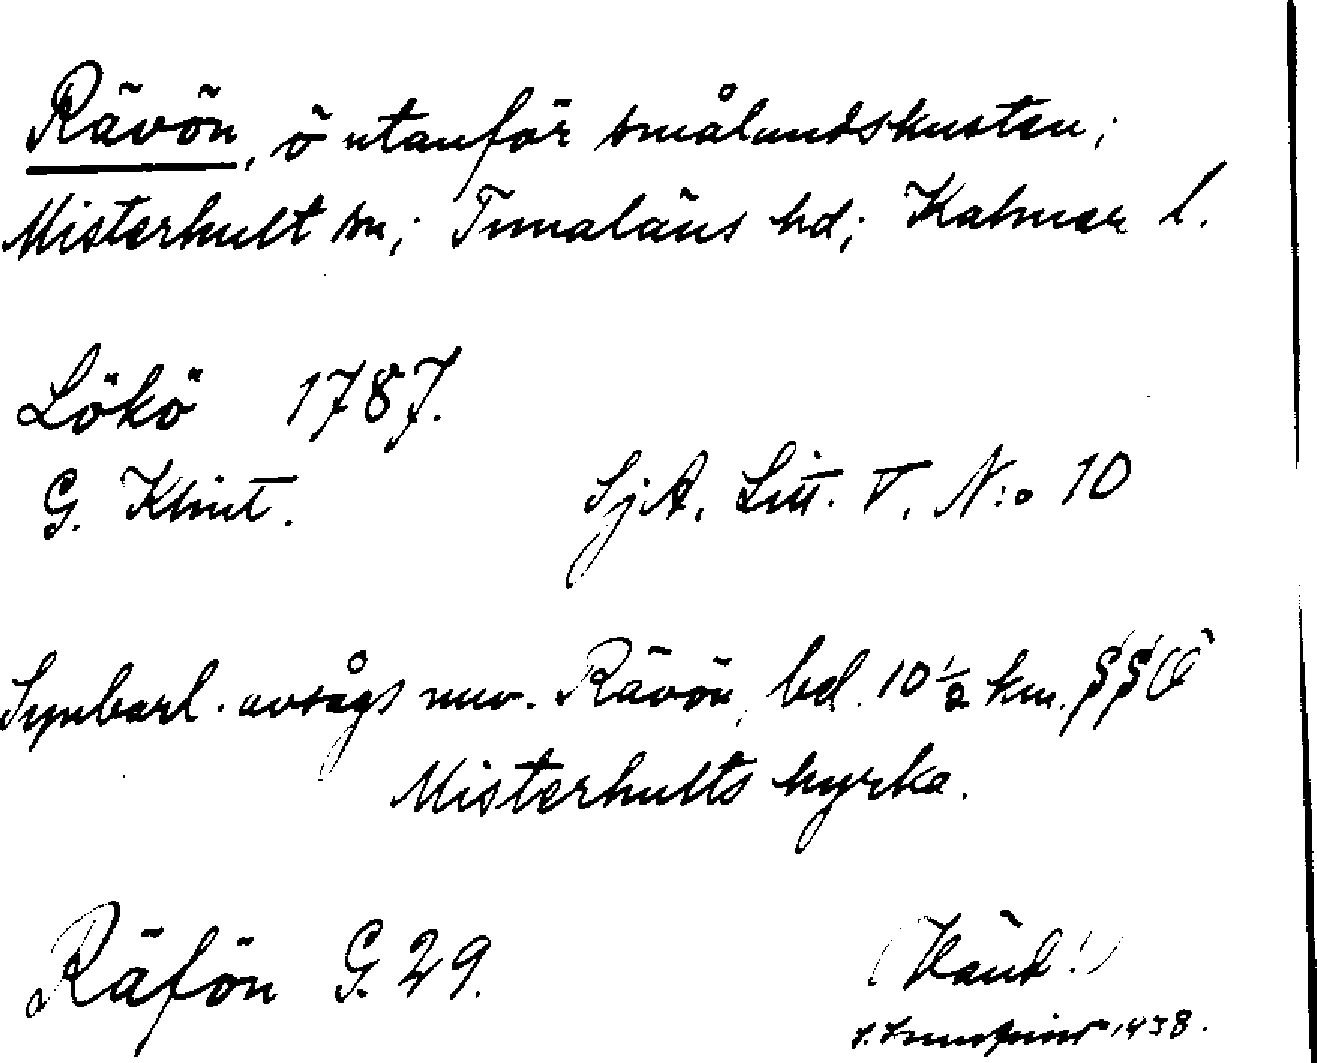 Rävön, ö utanför smålandskusten;
Misterhult sn; Tunaläns hd; Kalmar l.
Lökö 1787.
G. Klint. SjA. Litt. V. N:o 10
Synbarl. avsågs nuv. Rävön, bel. 10 1/2 km. SSÖ
Misterhults kyrka.
Räfön G. 29.
(Känd!)
1938.